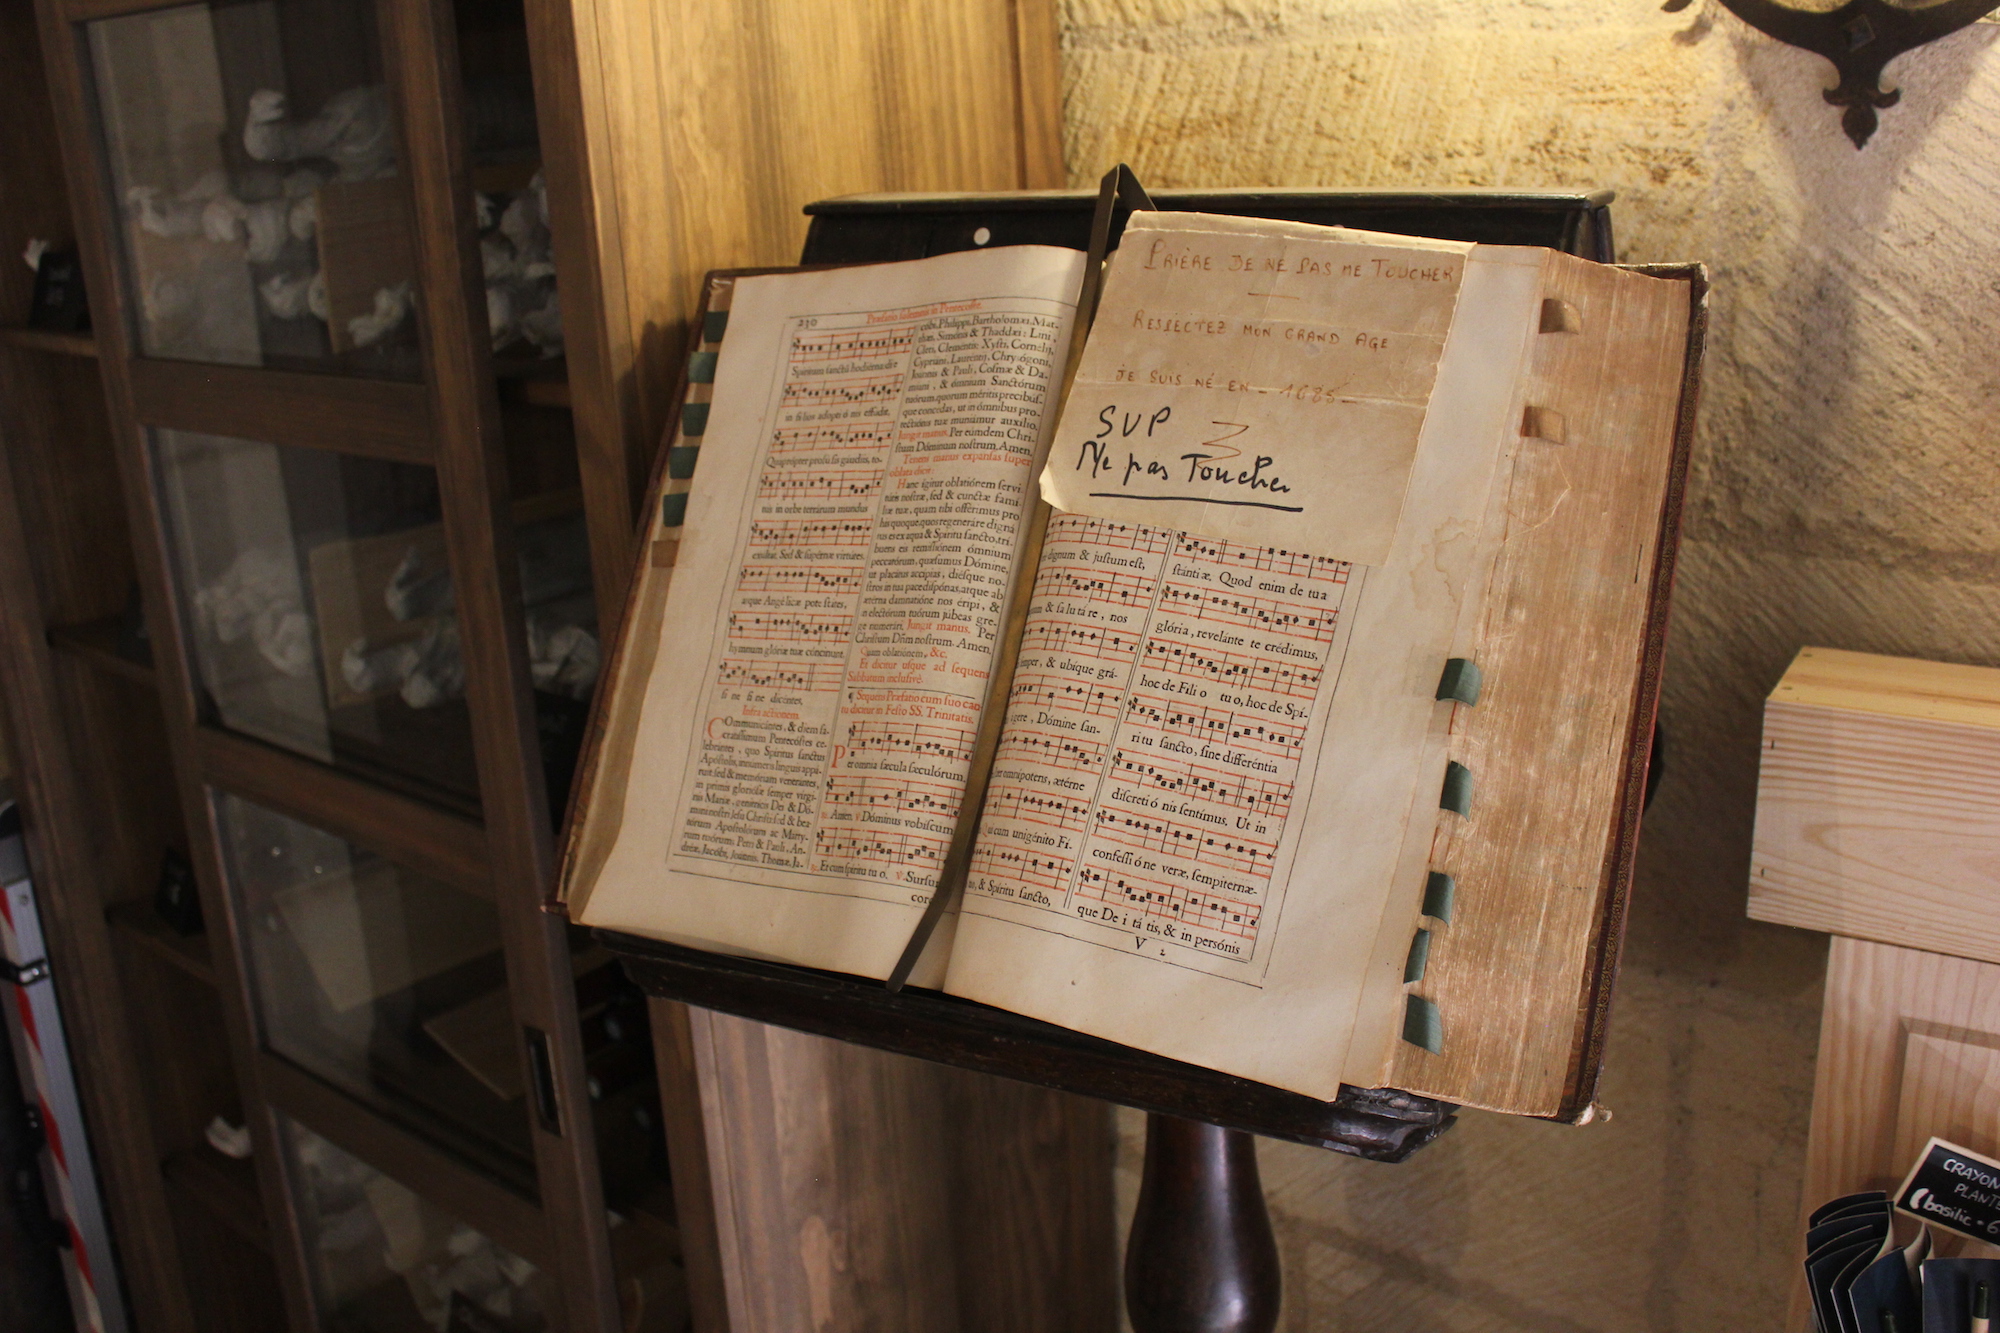 230 Præfatio solemnis in Pentecoste.
Spiritum sanctū hodierna die
in filios adopti ó nis effudit.
Quaproptér profúsis gaudiis, to-
tus in orbe terrárum mundus
exultat, Sed & supérnæ virtutes,
atque Angélicæ pote states,
hymnum glóriæ tuæ cóncinunt,
si ne fi ne dicéntes,
Infra actionem.
COmmunicántes, & diem sa-
cratíssimum Pentecóstes ce-
lebrántes, quo Spíritus sanctus
Apóstolis, innúmeris linguis appá-
ruit: sed & memóriam venerántes,
in primis gloriósæ semper vírgi-
nis Maríæ, genitrícis Dei & Dó-
mini nostri Jesu Christi: sed & bea-
tórum Apostolórum ac Márty-
rum tuórum, Petri & Pauli, An-
dréæ, Jacóbi, Joannis, Thomæ, Ja-
cóbi, Philippi, Bartholomæi, Mat-
thæi, Simónis & Thaddæi: Lini,
Cleti, Cleméntis: Xysti, Cornélij,
Cypriáni, Lauréntij, Chrysógoni,
Joannis & Pauli, Cosmæ & Da-
miáni, & ómnium Sanctórum
tuórum, quorum méritis precibus-
que concédas, ut in ómnibus pro-
tectiónis tuæ muniámur auxílio.
Jungit manus. Per eúmdem Chri-
stum Dóminum nostrum. Amen.
Tenens manus expansas super
oblata dicit:
Hanc ígitur oblatiónem servi-
tútis nostræ, sed & cunctæ famí-
liæ tuæ, quam tibi offérimus pro
his quoque, quos regeneráre digná
tus es ex aqua & Spíritu sancto, trí-
buens eis remissiónem ómnium
peccatórum, quæsumus Dómine,
ut placátus accípias, diésque no-
stros in tua pace dispónas, atque ab
ætérna damnatióne nos éripi, &
in electórum tuórum júbeas gre-
ge numerári. Jungit manus. Per
Christum Dñm nostrum. Amen.
Quam oblatiónem, &c.
Et dicitur usque ad sequens
Sabbatum inclusivè.
¶ Sequens Præfatio cum suo can-
tu dicitur in Festo SS. Trinitatis.
Per omnia sæcula sæculórum.
℟. Amen. ℣. Dóminus vobíscum
℟. Et cum spíritu tu o. ℣. Sursum
cor
PRIÈRE DE NE PAS ME TOUCHER
RESPECTEZ MON GRAND AGE
JE SUIS NÉ EN _ 1685 _
SVP
Ne pas Toucher
dignum & justum est,
& sa lu tá re, nos
semper, & ubíque grá-
ágere, Dómine san-
ter omnípotens, ætérne
Qui cum unigénito Fí-
& Spíritu sancto,
stánti æ. Quod enim de tu a
glória, revelánte te crédimus,
hoc de Fíli o tu o, hoc de Spí-
ri tu sancto, sine differéntia
discreti ó nis sentímus. Ut in
confessi ó ne veræ, sempitérnæ-
que De i tá tis, & in persónis
V 2
CRAYON
PLANTE
basilic - 6